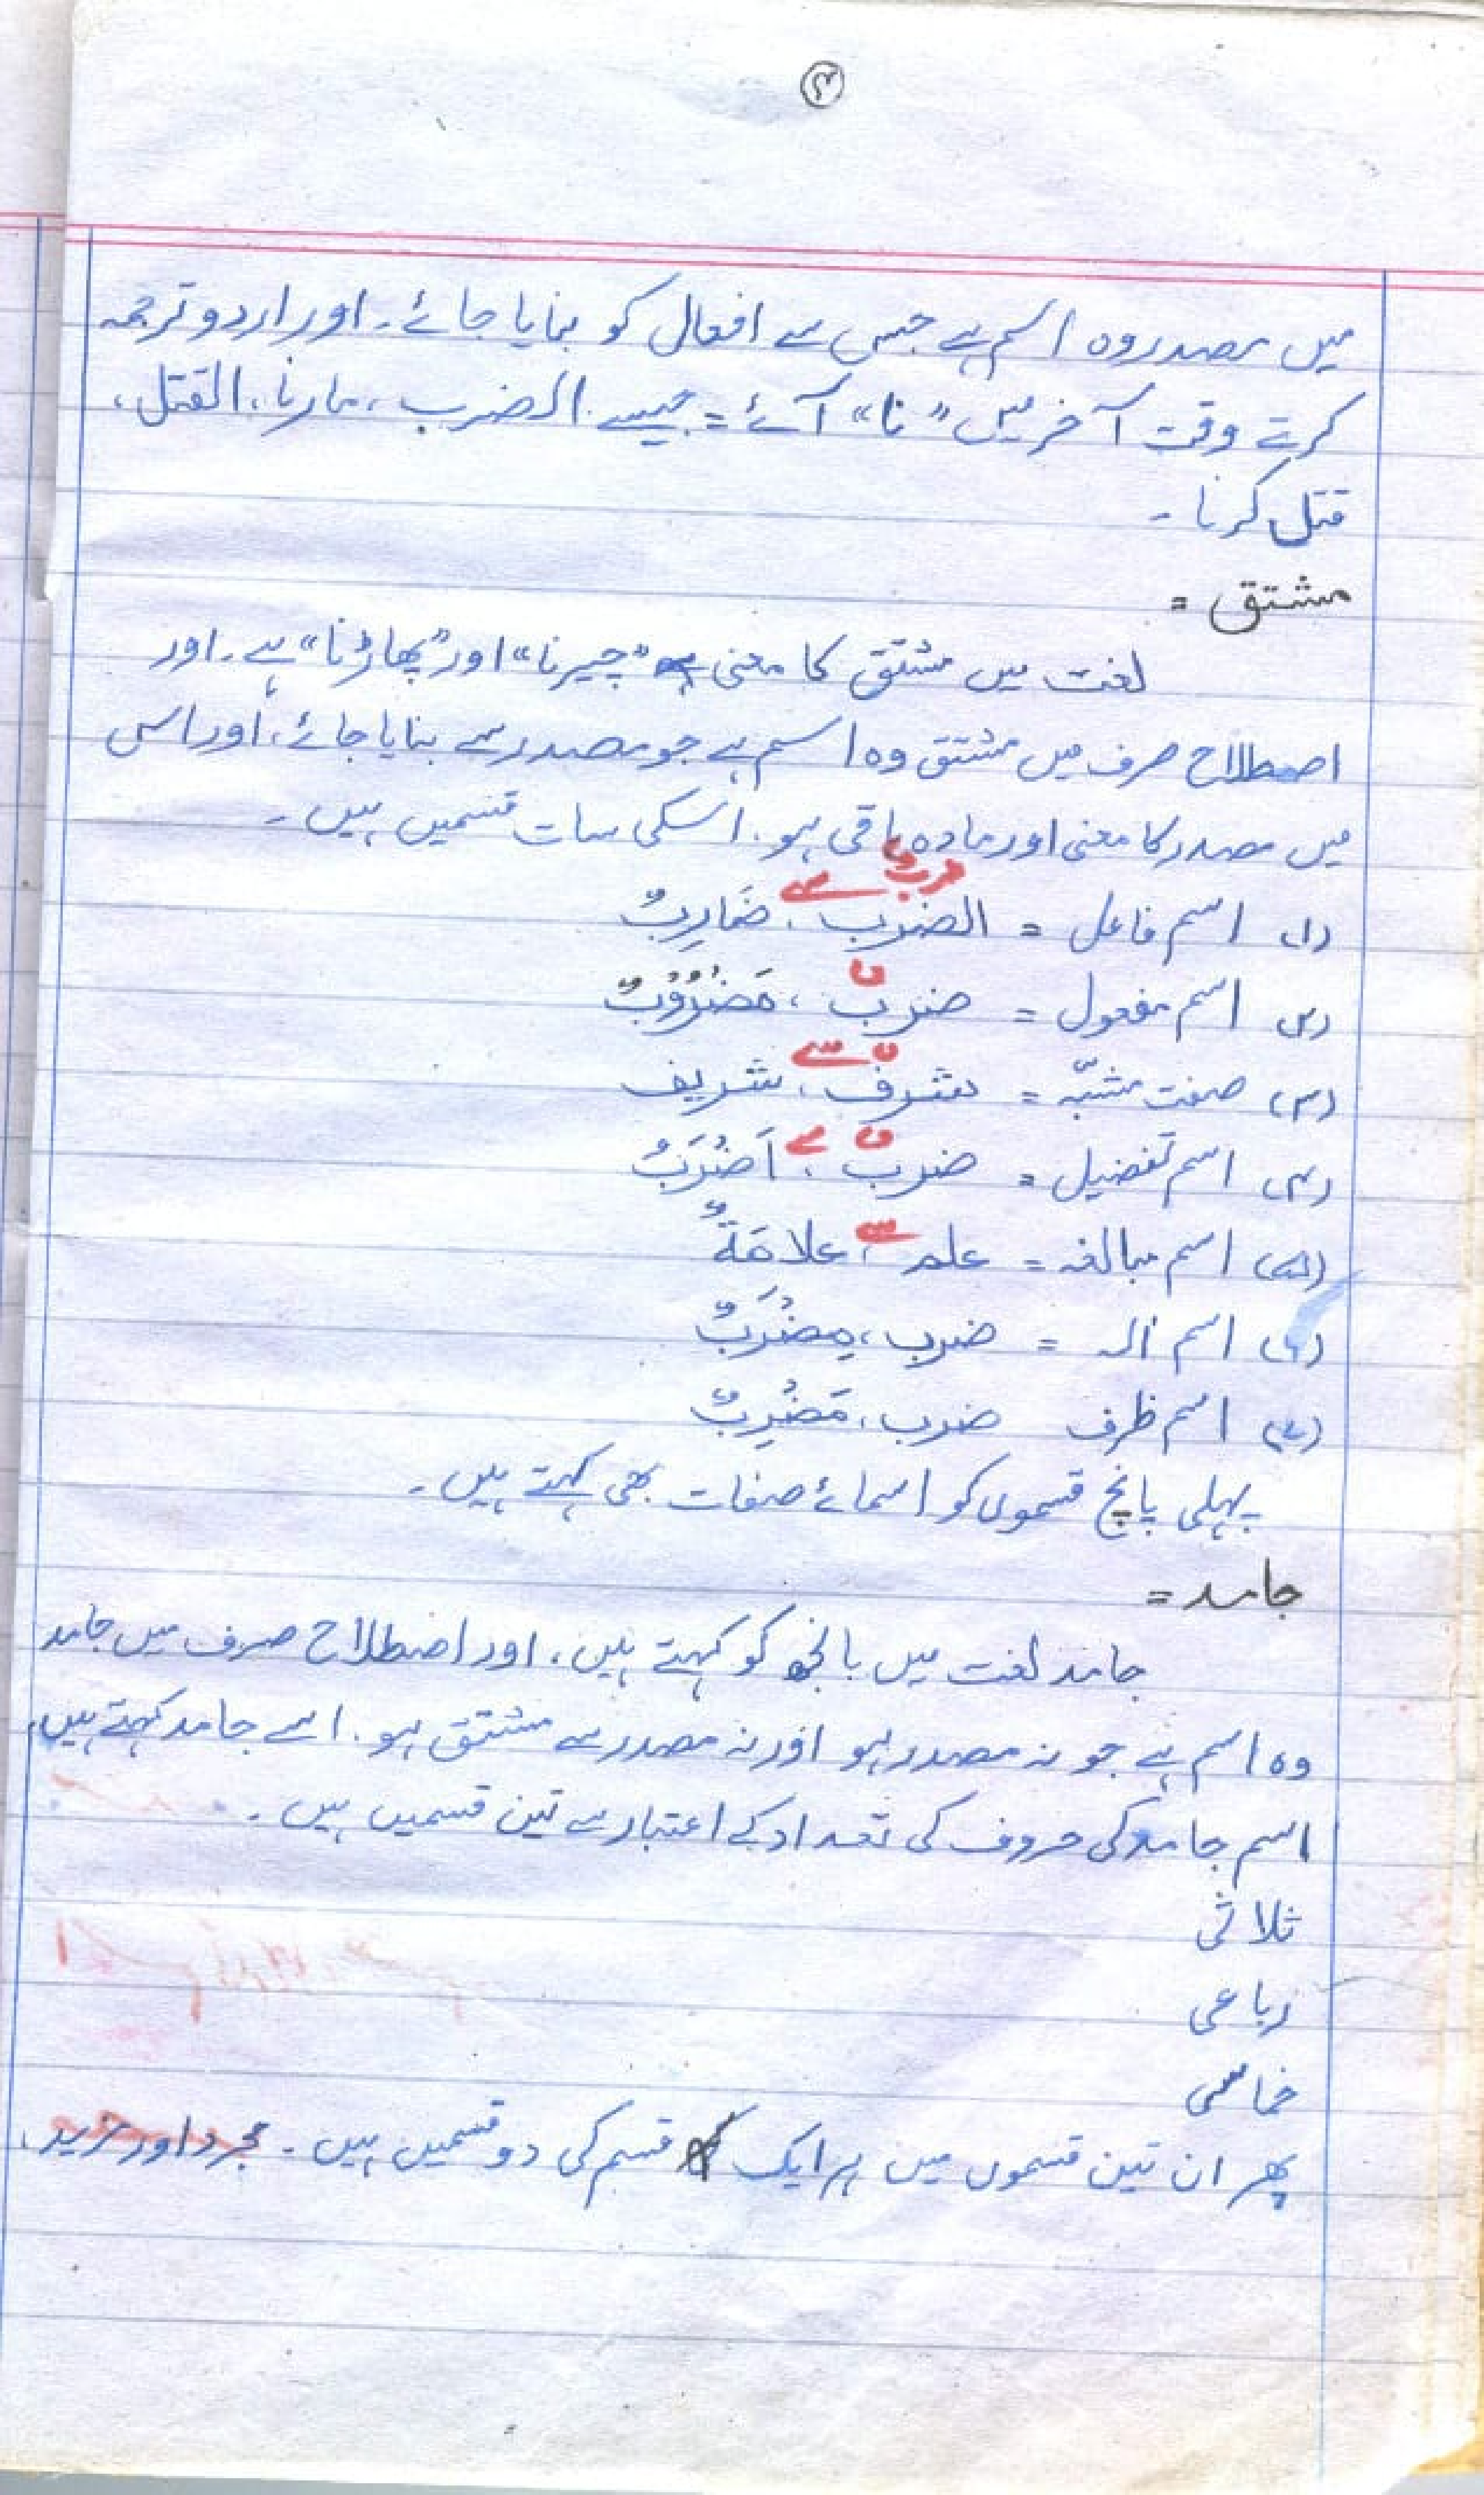 ۳
میں مصدر وہ اسم ہے جس سے افعال کو بنایا جائے۔ اور اردو ترجمہ
کرتے وقت آخر میں "نا" آئے = جیسے الضرب، مارنا، القتل،
قتل کرنا۔
مشتق =
لغت میں مشتق کا معنی "چیرنا" اور "پھاڑنا" ہے۔ اور
اصطلاح صرف میں مشتق وہ اسم ہے جو مصدر سے بنایا جائے، اور اس
میں مصدر کا معنی اور مادہ باقی ہو۔ اسکی سات قسمیں ہیں۔
ضرب
(۱) اسم فاعل = الضرب سے، ضَارِبٌ
(۲) اسم مفعول = ضربٌ، مَضْرُوْبٌ
(۳) صفت مشبّہ = شرفٌ سے، شریف
(۴) اسم تفضیل = ضربٌ سے، اَضْرَبُ
(۵) اسم مبالغہ = علم سے، علامَةٌ
(۶) اسم الہ = ضرب، مِضْرَبٌ
(۷) اسم ظرف ضرب، مَضْرِبٌ
پہلی پانچ قسموں کو اسمائے صفات بھی کہتے ہیں۔
جامد =
جامد لغت میں بانجھ کو کہتے ہیں، اور اصطلاح صرف میں جامد
وہ اسم ہے جو نہ مصدر ہو اور نہ مصدر سے مشتق ہو۔ اسے جامد کہتے ہیں
اسم جامد کی حروف کی تعداد کے اعتبار سے تین قسمیں ہیں۔
ثلاثی
رباعی
خماسی
پھر ان تین قسموں میں ہر ایک قسم کی دو قسمیں ہیں۔ مجرد اور مزید۔